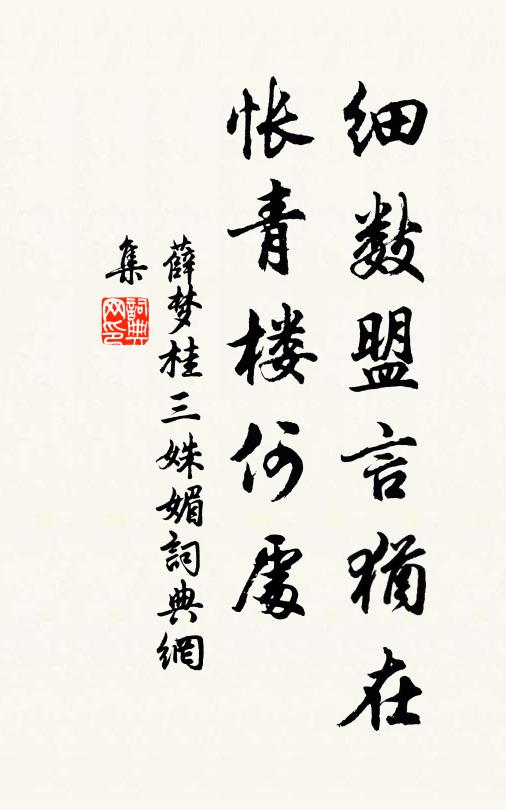 细数盟言犹在
怅青楼何处
薛梦桂三姝媚詞典網
集
詞典
网印